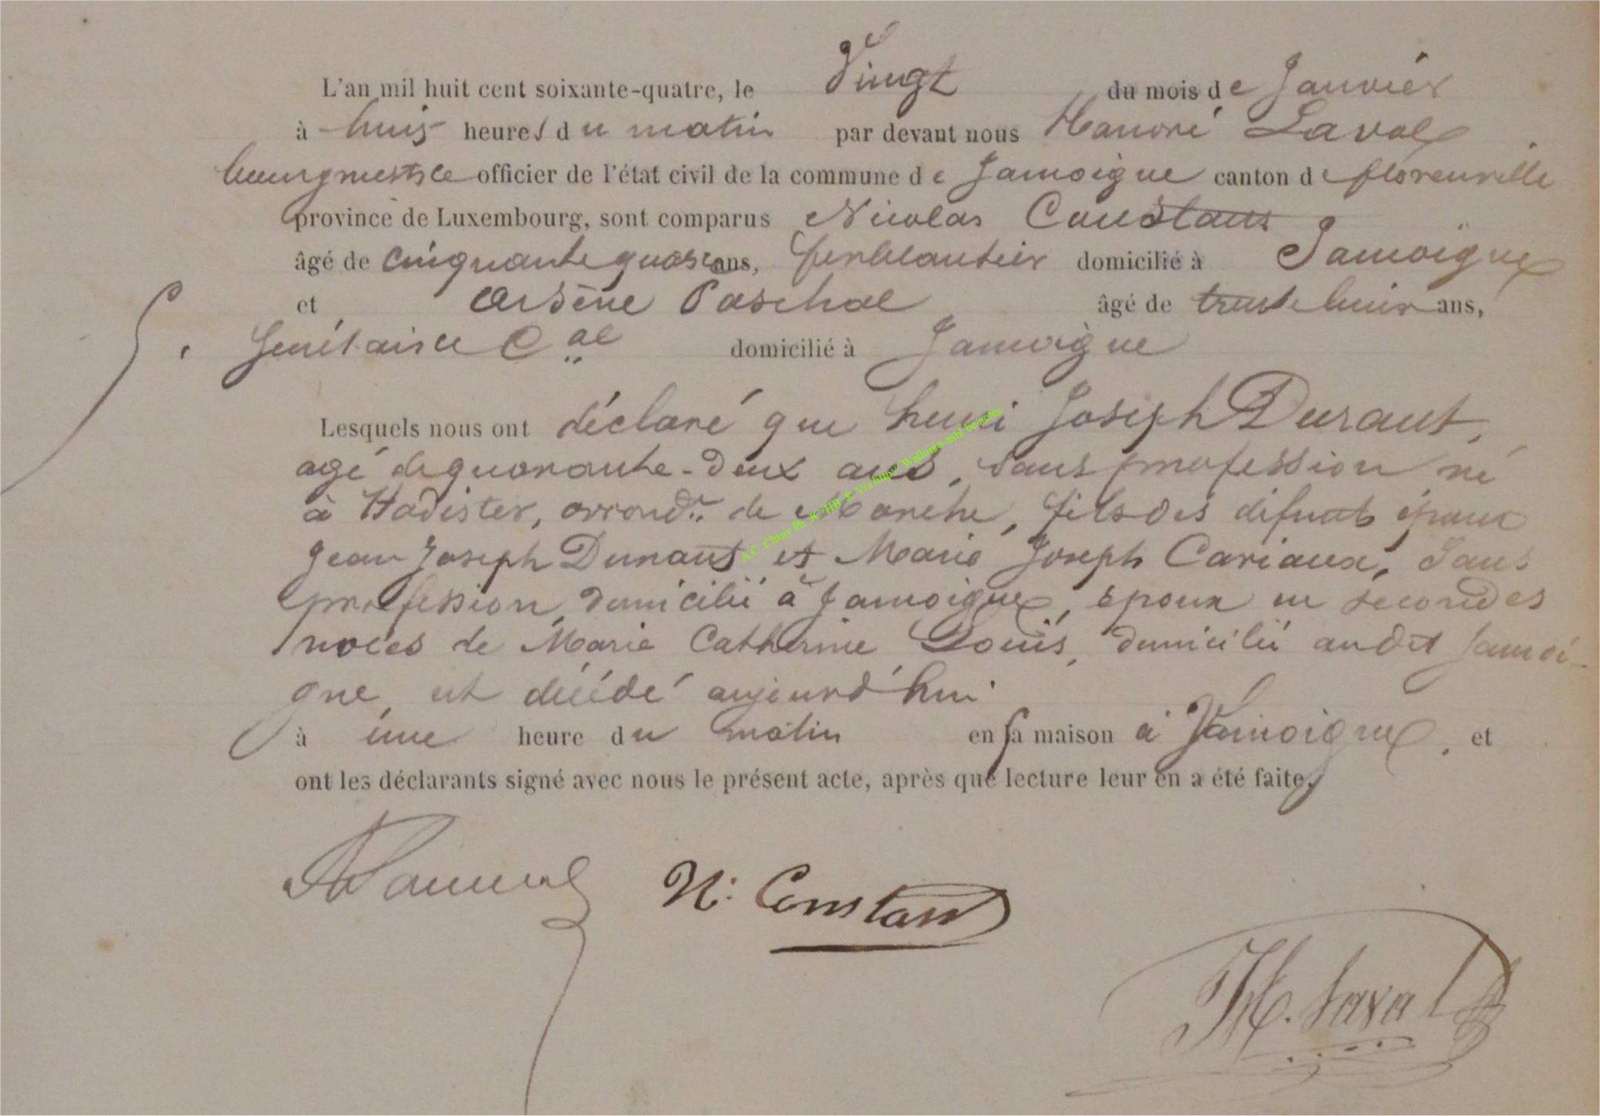 L'an mil huit cent soixante-quatre, le Vingt du mois de Janvier
à huit heures du matin par devant nous Honoré Laval
bourgmestre officier de l'état civil de la commune de Jamoigne canton de florenville
province de Luxembourg, sont comparus Nicolas Constant
âgé de cinquante quatre ans, ferblantier domicilié à Jamoigne
et Arsène Paschal âgé de trente huit ans,
5. Secrétaire Cal domicilié à Jamoigne
Lesquels nous ont déclaré que henri Joseph Durant,
agé de quarante-deux ans, sans profession né
à Hodister, arrondt. de Marche, fils des défunts époux
Jean Joseph Durant et Marie Joseph Cariaux, sans
profession, domicilié à Jamoigne, époux en secondes
noces de Marie Catherine Louis, domicilié audit Jamoi-
gne, est décédé aujourd'hui
à une heure du matin en sa maison à Jamoigne, et
ont les déclarants signé avec nous le présent acte, après que lecture leur en a été faite,
N. Constant
H. Laval